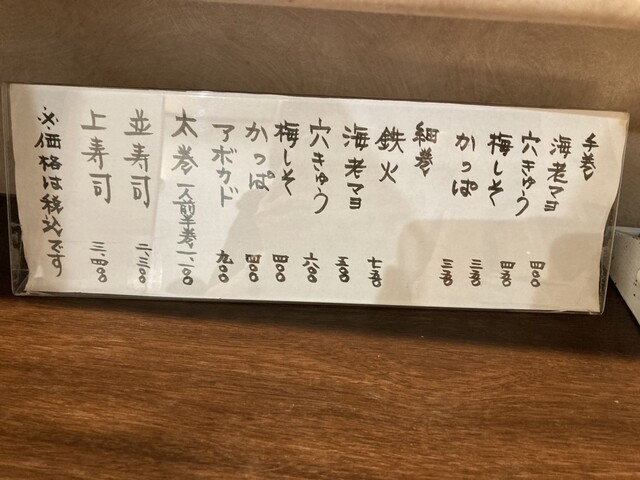 手巻
海老マヨ 四〇〇
穴きゅう 四五〇
梅しそ 三五〇
かっぱ 三五〇
細巻
鉄火 七五〇
海老マヨ 五〇〇
穴きゅう 六〇〇
梅しそ 四〇〇
かっぱ 四〇〇
アボカド 九〇〇
太巻 一人前半巻 一、一〇〇
並寿司 二、三〇〇
上寿司 三、四〇〇
※価格は税込です